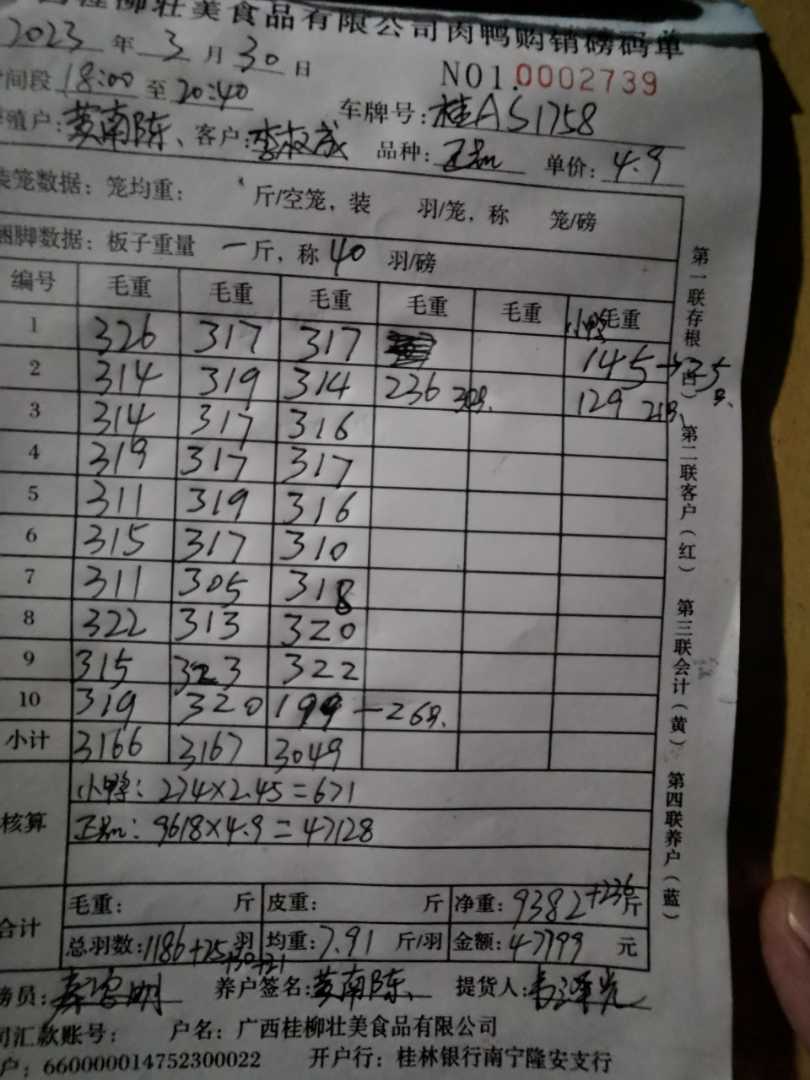 桂柳壮美食品有限公司肉鸭购销磅码单
2023 年 3 月 30 日 NO1.0002739
间段 18:00 至 20:40
殖户: 黄南陈、 客户: 车牌号: 桂AS1758
品种: 正品 单价: 4.9
装笼数据: 笼均重: 斤/空笼, 装 羽/笼, 称 笼/磅
捆脚数据: 板子重量 一斤, 称 40 羽/磅
编号 毛重 毛重 毛重 毛重 毛重 小鸭 毛重
1 326 317 317 145→25只
2 314 319 314 236 30只 129 21只
3 314 317 316
4 319 317 317
5 311 319 316
6 315 317 310
7 311 305 318
8 322 313 320
9 315 323 322
10 319 320 199 —26只.
小计 3166 3167 3049
核算 小鸭: 274×2.45=671
正品: 9618×4.9=47128
合计 毛重: 斤 皮重: 斤 净重: 9382+236 斤
总羽数: 1186+25+30+21 羽 均重: 7.91 斤/羽 金额: 47799 元
磅员: 养户签名: 黄南陈、 提货人:
司汇款账号: 户名: 广西桂柳壮美食品有限公司
户: 660000014752300022 开户行: 桂林银行南宁隆安支行
第一联存根(白) 第二联客户(红) 第三联会计(黄) 第四联养户(蓝)